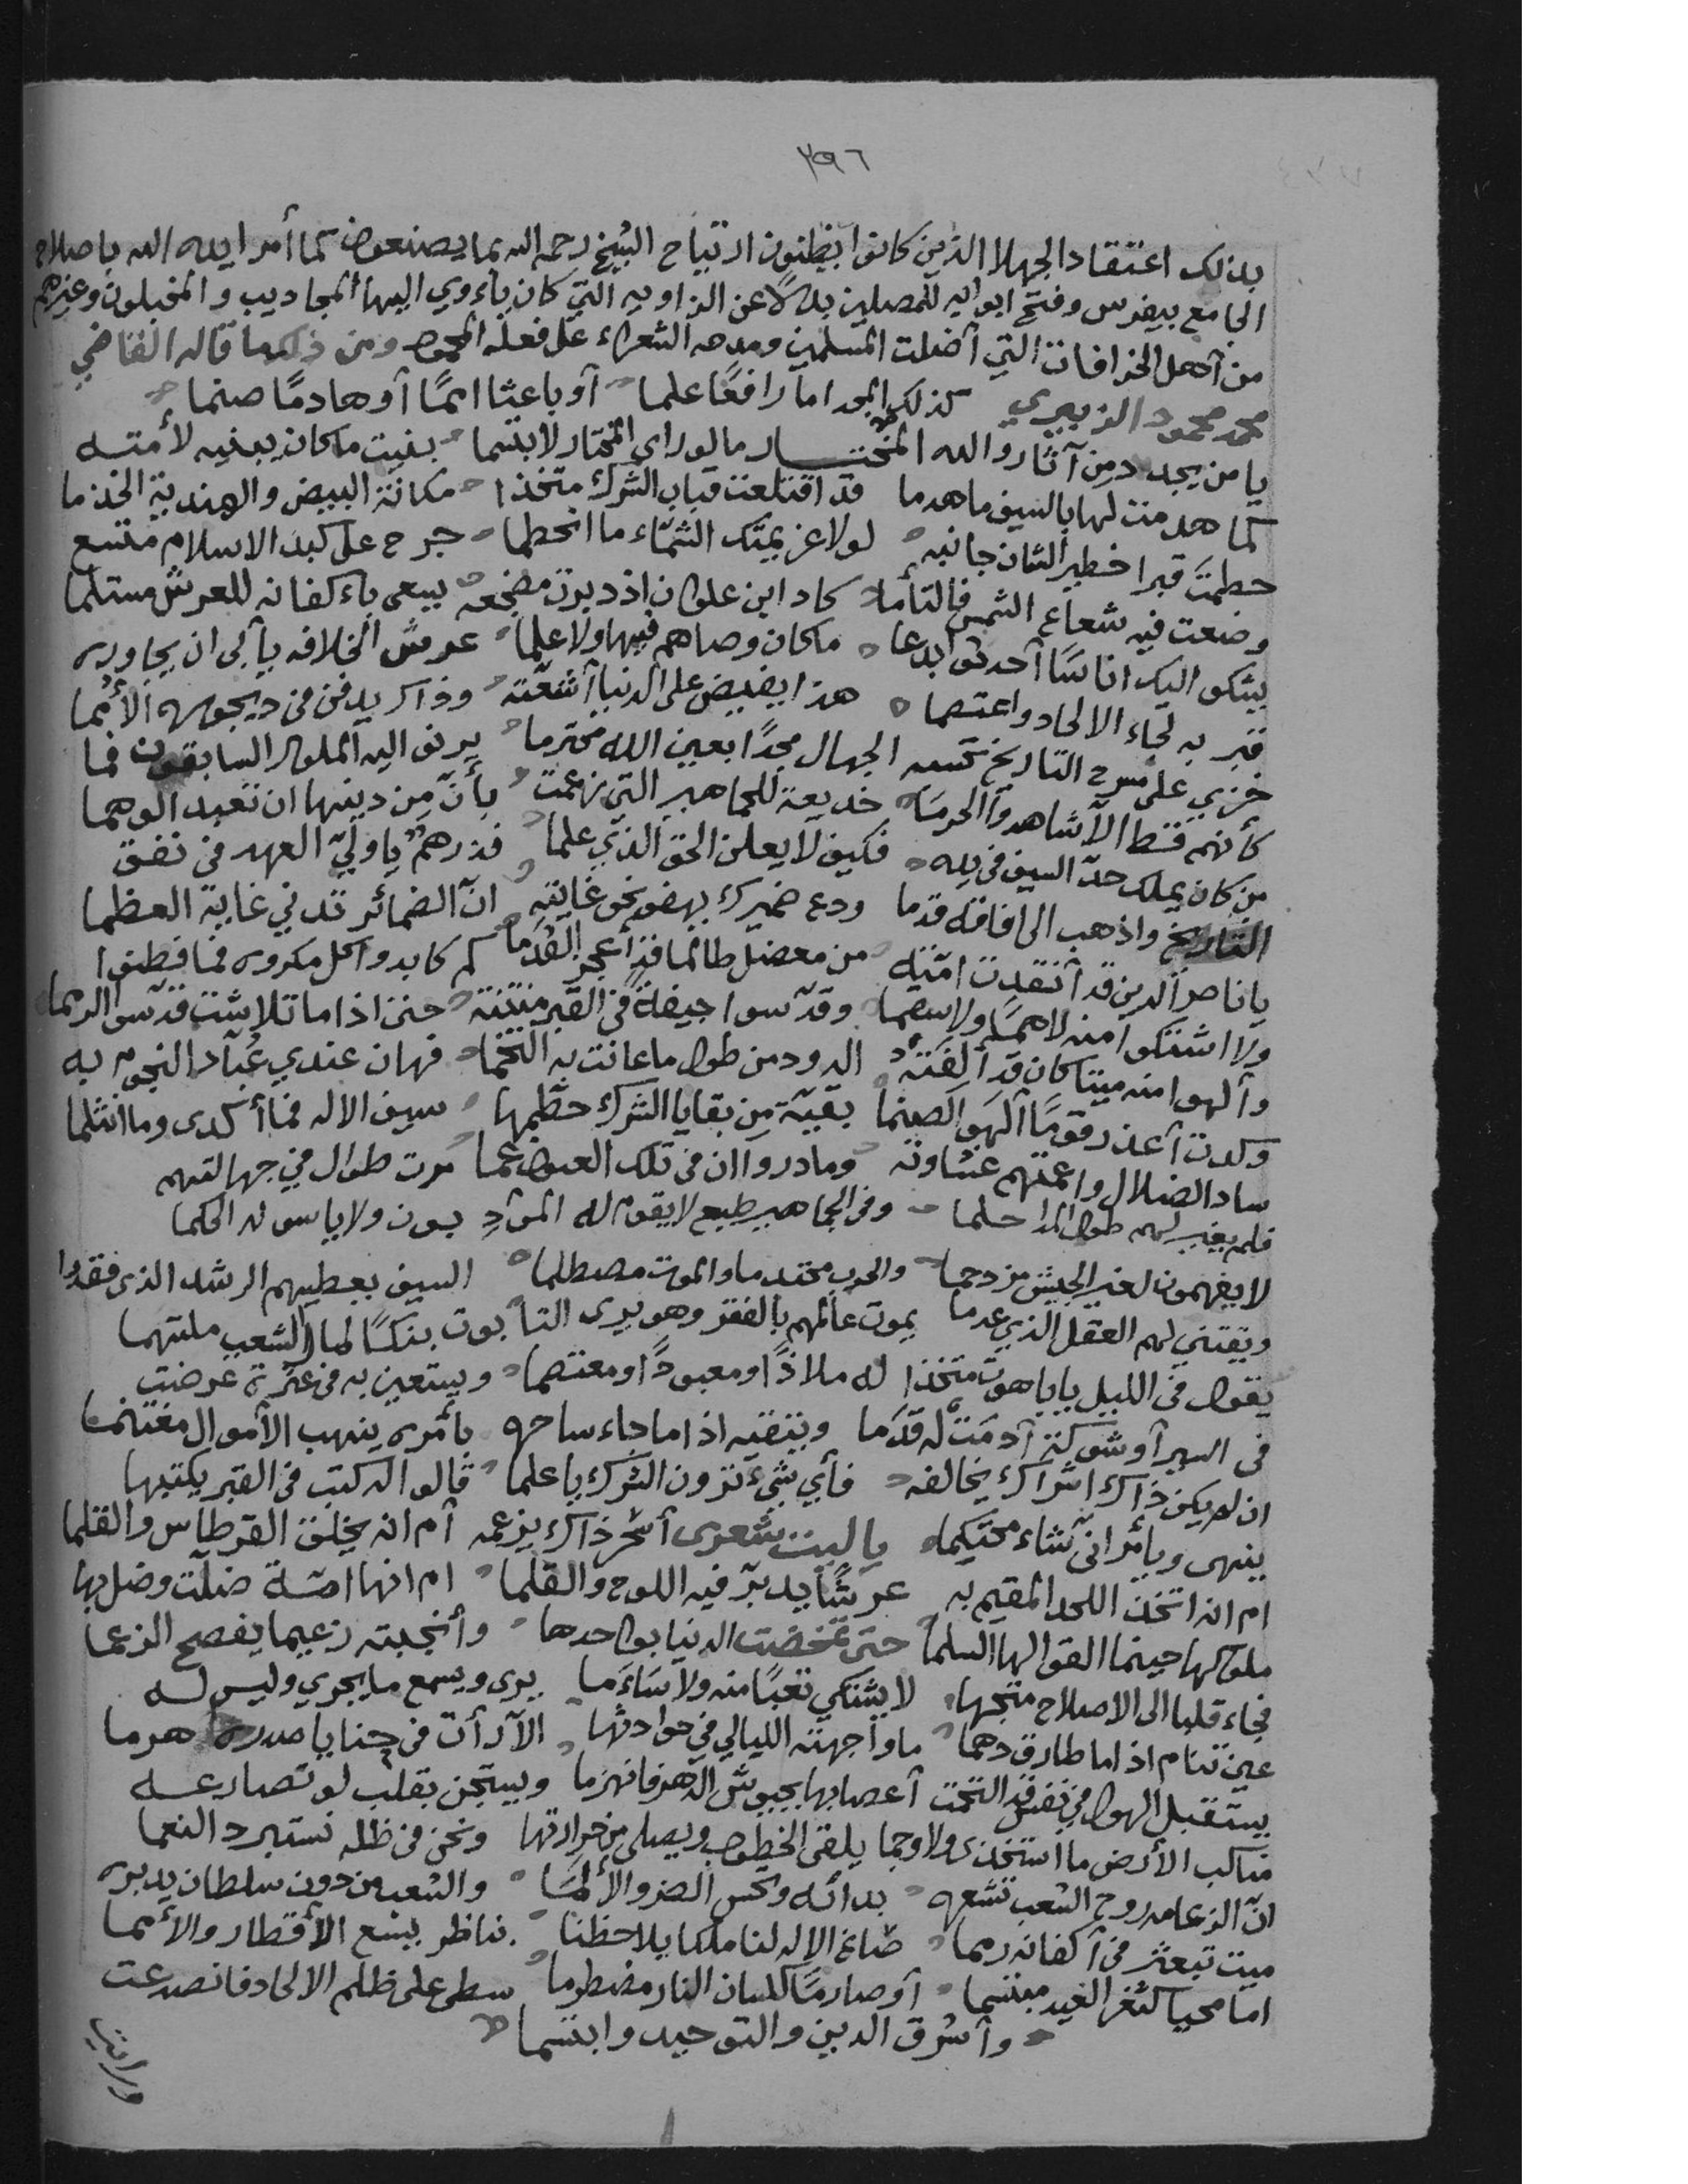 ٢٩٦
بذلك اعتقاد الجهلا الذين كانوا يظنون ارتياح الشيخ رحمه الله بما يصنعون كما أمر ايده الله باصلاح
الجامع بيفرس وفتح ابوابه للمصلين بدلًا عن الزاويه التي كان يأوي اليها المجاذيب والمخبلون وغيرهم
من أهل الخرافات التي أضلت المسلمين ومدحه الشعراء على فعله المحمود ومن ذلك ما قاله القاضي
محمد محمود الزبيري كذلك المجد اما رافعًا علما أو باعثا اممًا أو هادمًا صنما
يا من يجدد من آثار والله المختار ما لو رأى المختار لابتسما بنيت ما كان يبنيه لأمته
كما هدمت لها بالسيف ما هدما قد اقتلعت قباب الشرك متخذا مكانة البيض والهندية الخذما
حطمتَ قبرا خطير الشان جانبه لولا عزيمتك الشمّاء ما انحطما جرح على كبد الاسلام متسع
وضعت فيه شعاع الشمس فالتأما كاد ابن علوان اذ دبرت مضجعه يسعى بأكفانه للعرش مستلما
يشكو اليك اناسًا أحدثوا بدعا ما كان وصاهم فيها ولا علما عرش الخلافه يأبى ان يجاوره
قبر به لجاء الالحاد واعتصما هذا يفيض على الدنيا أشعّته وذاك يدفن في ديجوره الأمما
خزي على مسرح التاريخ تحسبه الجهال مجدًا بعين الله محترما يرنو اليه الملوك السابقون فما
كأنهم قط الا شاهدوا الحرما خديعة للجماهير التي زعمت بأنّ من دينها ان تعبد الوهما
من كان يملك حدّ السيف في يده فكيف لا يعلن الحق الذي علما فذرهم يا وليّ العهد في نفق
التاريخ واذهب الى افاقه قدما ودع ضميرك يهفو نحو غايته انّ الضمائر تدني غاية العظما
يا ناصر الدين قد أنقذت امّته من معضل طالما قد أعجز القُدَما كم كابدوا كل مكروه فما فطنوا
ولا اشتكوا منه لا همسًا ولا سقما وقدّسوا جيفةً في القبر منتنة حتى اذا ما تلاشت قدّسوا الرمما
وألهوا منه ميتا كان قد ألفته الدود من طول ما عانت به التخما فهان عندي عُبّاد النجوم به
وكدت أعذر قومًا ألهوا الصنما بقيّة من بقايا الشرك حطّمها سيف الاله فما أكدى وما انثلما
ساد الضلال واعمتهم غشاوته وما دروا ان في تلك العيون عما مرت طوال في جهالتهم
فلم يغير لهم طول المدا حلما وفي الجماهير طبع لا يقوم له المؤدبون ولا ياسو له الحكما
لا يفهمون لغير الجيش مزدحما والحرب محتدما والموت مصطلما السيف يعطيهم الرشد الذي فقدوا
ويقتني لهم العقل الذي عدما يموت عالمهم بالفقر وهو يرى التابوت بنكًا لمال الشعب ملتهما
يقول في الليل يا باهوت متخذا له ملاذًا ومعبودًا ومعتصما ويستعين به في عثرة عرضت
في السير أو شوكة أدمَت له قدَما ويتقيه اذا ما جاء ساحره بأمره ينهب الأموال مغتنما
ان لم يكن ذاك اشراك يخالفه فأي شيء ترون الشرك يا علما قالوا اله كتب في القبر يكتبها
ينهى ويأمر انّى شاء محتكما يا ليت شعري أسحر ذاك يزعمه أم انه يخلق القرطاس والقلما
ام انه اتخذ اللحد المقيم به عرشًا يدبّر فيه اللوح والقلما ام انها امّة ضلّت وضل بها
ملوكها حينما القوا لها السلما حتى تمخضت الدنيا بواحدها وأنجبته زعيما يفضح الزعما
فجاء قلبا الى الاصلاح متجها لا يشتكي تعبًا منه ولا سَأَما يرى ويسمع ما يجري وليس له
عين تنام اذا ما طارق دهما ما واجهته الليالي في حوادثها الا رأت في حنايا صدره هرما
يستقبل الهول في نفس قد التحمت أعصابها بجيوش الدهر فانهزما ويستجن بقلب لو تصارعه
مناكب الأرض ما استخذى ولا وجما يلقى الخطوب ويصلى من حرارتها ونحن في ظله نستبرد النعما
انّ الزعامه روح الشعب تشعره بدائه وتحس الضر والألمَا والشعب من دون سلطان يدبره
ميت تبعثر في أكفانه رمما صاغ الاله لنا ملكا يلاحظنا بناظر يسع الأقطار والأمما
اما محيا كثغر الغيد مبتسما أو صارمًا كلسان النار مضطرما سطى على ظلم الالحاد فانصدعت
وأشرق الدين والتوحيد وابتسما